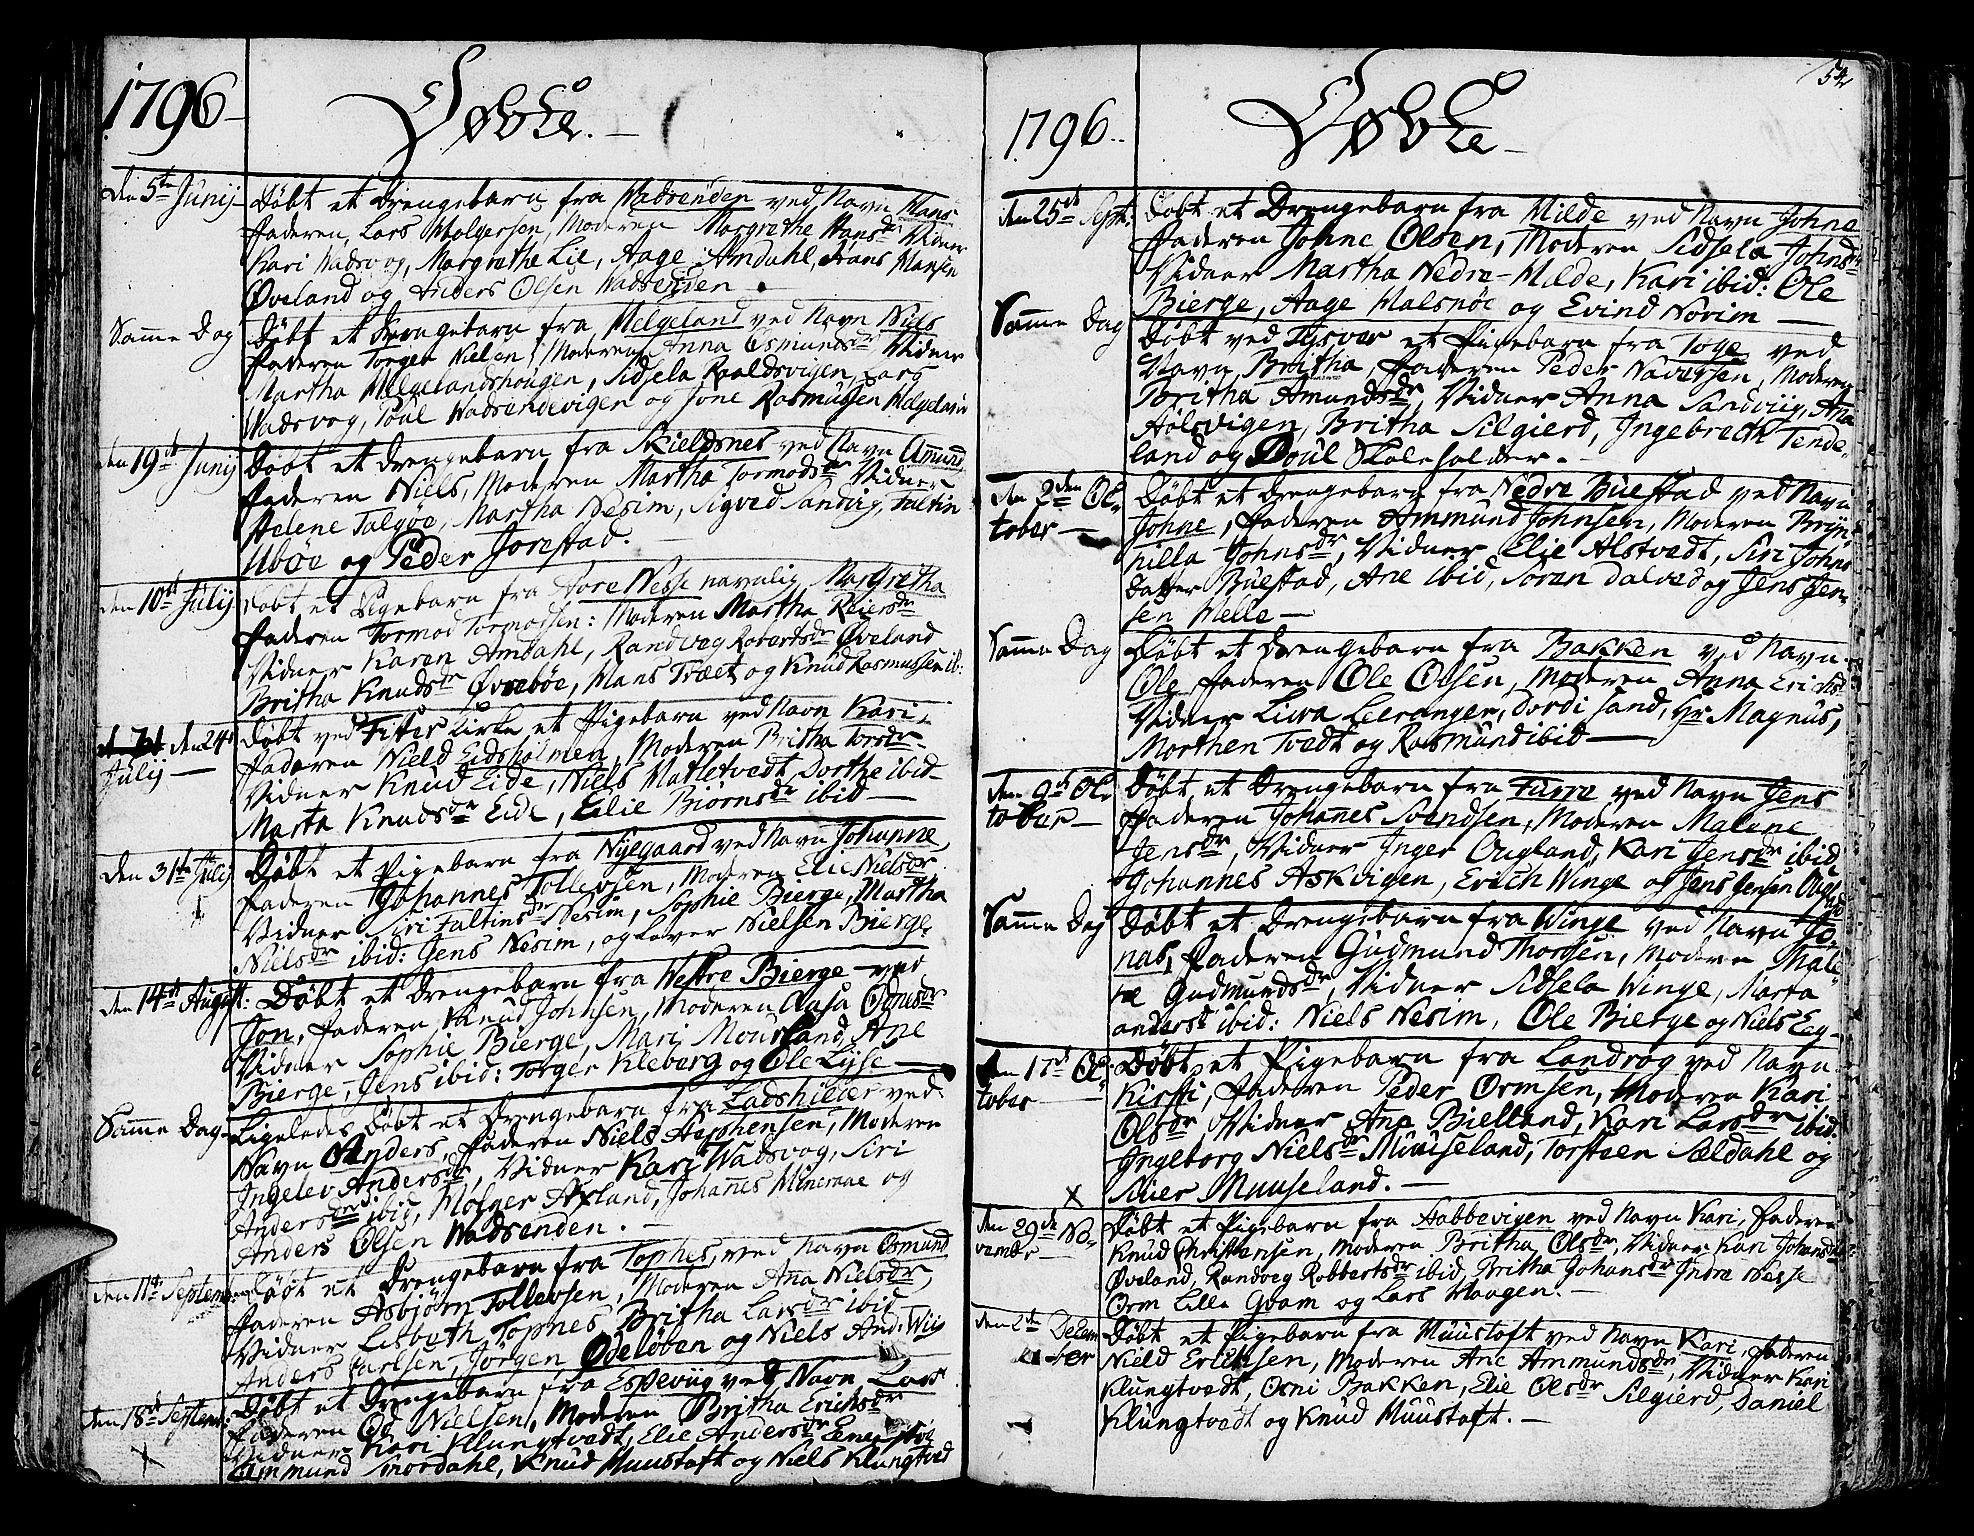 1796
Døbte.
den 5te Junij
Døbt et Drengebarn fra Wadsenden ved Navn Hans
Faderen, Lars Holgersen, Moderen Margrethe Hansdr Vidner
Kari Wadsvog, Margrethe Lie, Aage Amdahl, Hans Hansen
Øveland og Anders Olsen Wadsenden
Samme Dag
Døbt et Drengebarn fra Helgeland ved Navn Niels
Faderen Torger Nielsen, Moderen Anna Osmundsdr Vidner
Martha Helgelandshougen, Sidsela Raaldsvigen, Lars
Wadsvog, Poul Wadsendevigen og Jone Rasmussen Helgeland
den 19de Junij
Døbt et Drengebarn fra Skieldsnes ved Navn Amund
Faderen Niels, Moderen Martha Tormodsdr Vidner
Helene Talgøe, Martha Nesim, Sigved Sandvig, Faltin
Ubøe og Peder Jorestad.
den 10de Julij
Døbt et Pigebarn fra Aore Nesse navnlig Margretha
Faderen Tormod Tormodsen: Moderen Martha Reiersdr
Vidner Karen Amdahl, Randveg Robertsdr Øveland
Britha Knudsdr Øvrebøe, Hans Træet og Knud Rasmussen ib:
den 24de
Julij
Døbt ved Fitjes Kirke et Pigebarn ved Navn Kari,
Faderen Nield Eidsholmen, Moderen Britha Torsdr
Vidner Knud Eide, Niels Matletvedt, Dorthe ibid
Marta Knudsdr Eide, Elie Biørnsdr ibid
den 31te Julij
Døbt et Pigebarn fra Nyegaard ved Navn Johanne,
Faderen Johannes Tollevsen, Moderen Elie Nielsdr
Vidner Siri Faltinsdr Nesim, Sophie Bierge, Martha
Nielsdr ibid: Jens Nesim, og Laver Nielsen Bierge
den 14de August:
Døbt et Drengebarn fra Westre Bierge ved
Jon, Faderen, Knud Johnsen, Moderen Aasa Odnisdr
Vidner Sophie Bierge, Mari Mousland, Ane
Bierge, Jens ibid: Torger Kleberg og Ole Lyse
Samme Dag
Ligeledes døbt et Drengebarn fra Ladshilier ved
Navn Anders, Faderen Niels Stephensen, Moderen
Ingelev Andersdr, Vidner Kari Wadsvog, Siri
Andersdr ibid, Holger Axland, Johannes Mineraae og
Anders Olsen Wadsenden.
den 11te Septem
Døbt et Drengebarn fra Tophes, ved Navn Osmund
Faderen Asbjørn Tollevsen, Moderen Ana Nielsdr
Vidner Lisbeth Topnes, Britha Larsdr ibid
Anders Carlsen, Jørgen Ødeløben og Niels And: Wiig
den 18de Septem:
Døbt et Drengebarn fra Espeviig ved Navn Lars
Faderen Ole Nielsen, Moderen Britha Erichsdr
Vidner Kari Klungtvedt, Elie Andersdr
Ammund Snordahl, Knud Muustoft og Niels Klungtved
54
1796
Døbte
den 25de Sept.
Døbt et Drengebarn fra Milde ved Navn Johne
Faderen Johne Olsen, Moderen Sidsela Johnsdr
Vidner Martha Nedre-Milde, Kari ibid: Ole
Bierge, Aage Halsnøe og Evind Novim
Samme Dag
Døbt ved Tysver et Pigebarn fra Toge ved
Navn Britha, Faderen Peder Naversen, Moderen
Britha Amundsdr, Vidner Anna Sandviig, Ana
Aølsvigen, Britha Silgierd, Ingebreth Tende
land og Poul Skoleholder.
den 2den Oc
tober
Døbt et Drengebarn fra Nedre Buestad ved Navn
Johne, Faderen Ammund Johnsen, Moderen Bryn
hilla Johnsdr, Vidner Elie Alstvedt, Siri Johns
datter Buestad, Ane ibid, Soren Dalved og Jens Jen
sen Helle
Samme Dag
Døbt et Drengebarn fra Bakken ved Navn
Ole Faderen Ole Olsen, Moderen Anna
Vidner Liwa Leeranger, Dordi Sand, Hr Magnus,
Morthen Tvedt og Rasmund ibid
den 9de Oc
tober
Døbt et Drengebarn fra Furre ved Navn Jens
Faderen Johanes Svendsen, Moderen Malene
Jensdr, Vidner Inger Ougland, Kari Jensdr ibid
Johannes Askvigen, Erich Winge og Jens Jensen Ougland
Samme Dag
Døbt et Drengebarn fra Winge ved Navn Jo
nas, Faderen Gudmund Thorsen, Moderen Male
ne Gudmundsdr, Vidner Sidsela Winge, Marta
andersdr ibid: Niels Nesim, Ole Bierge og Niels Eeg
den 17de Oc
tober
Døbt et Pigebarn fra Landraag ved Navn
Kirsti, Faderen Peder Ormsen, Moderen Kari
Olsdr Vidner Ane Bielland, Kari Larsdr ibid.
Ingeborg Nielsdr Muuseland, Torsteen Sældahl og
Siver Muuseland.
X
den 29de No
vembr
Døbt et Pigebarn fra Habbevigen ved Navn Kari, Faderen
Knud Christensen, Moderen Britha Olsdr, Vidner Kari Johansdr
Øveland, Randveg Robbertsdr ibid, Britha Johansdr Indre Nesse
Orm Lille Qvam og Lars Haagen.
den 2de Decem
ber
Døbt et Pigebarn fra Muustoft ved Navn Kari, Faderen
Nield Ericksen, Moderen Ane Ammundsdr, Vidner Kari
Klungtvedt, Osni Bakken, Elie Olsdr Silgierd, Daniel
Klungtvedt og Knud Muustoft.